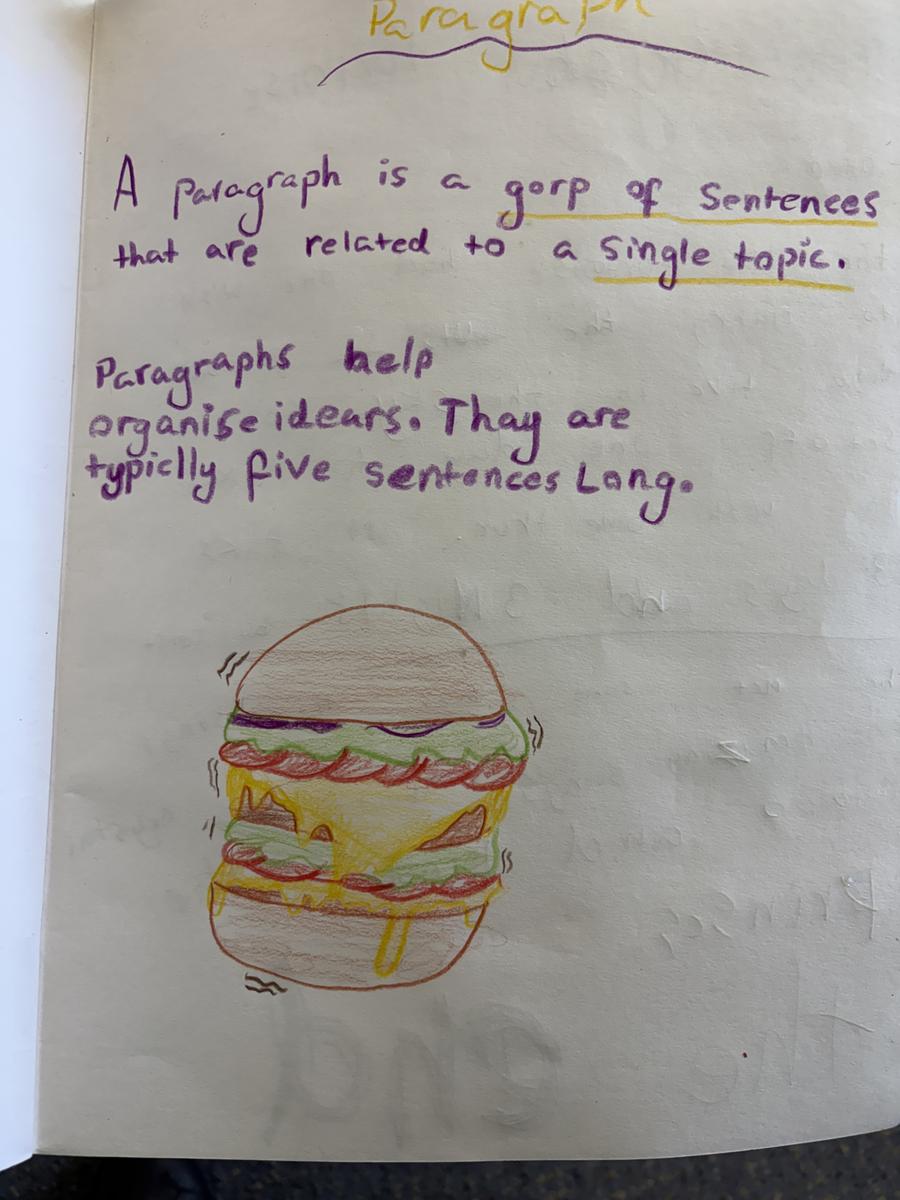 Paragraph
A paragraph is a gorp of Sentences
that are related to a single topic.
Paragraphs help
organise idears. Thay are
typiclly five sentences Long.